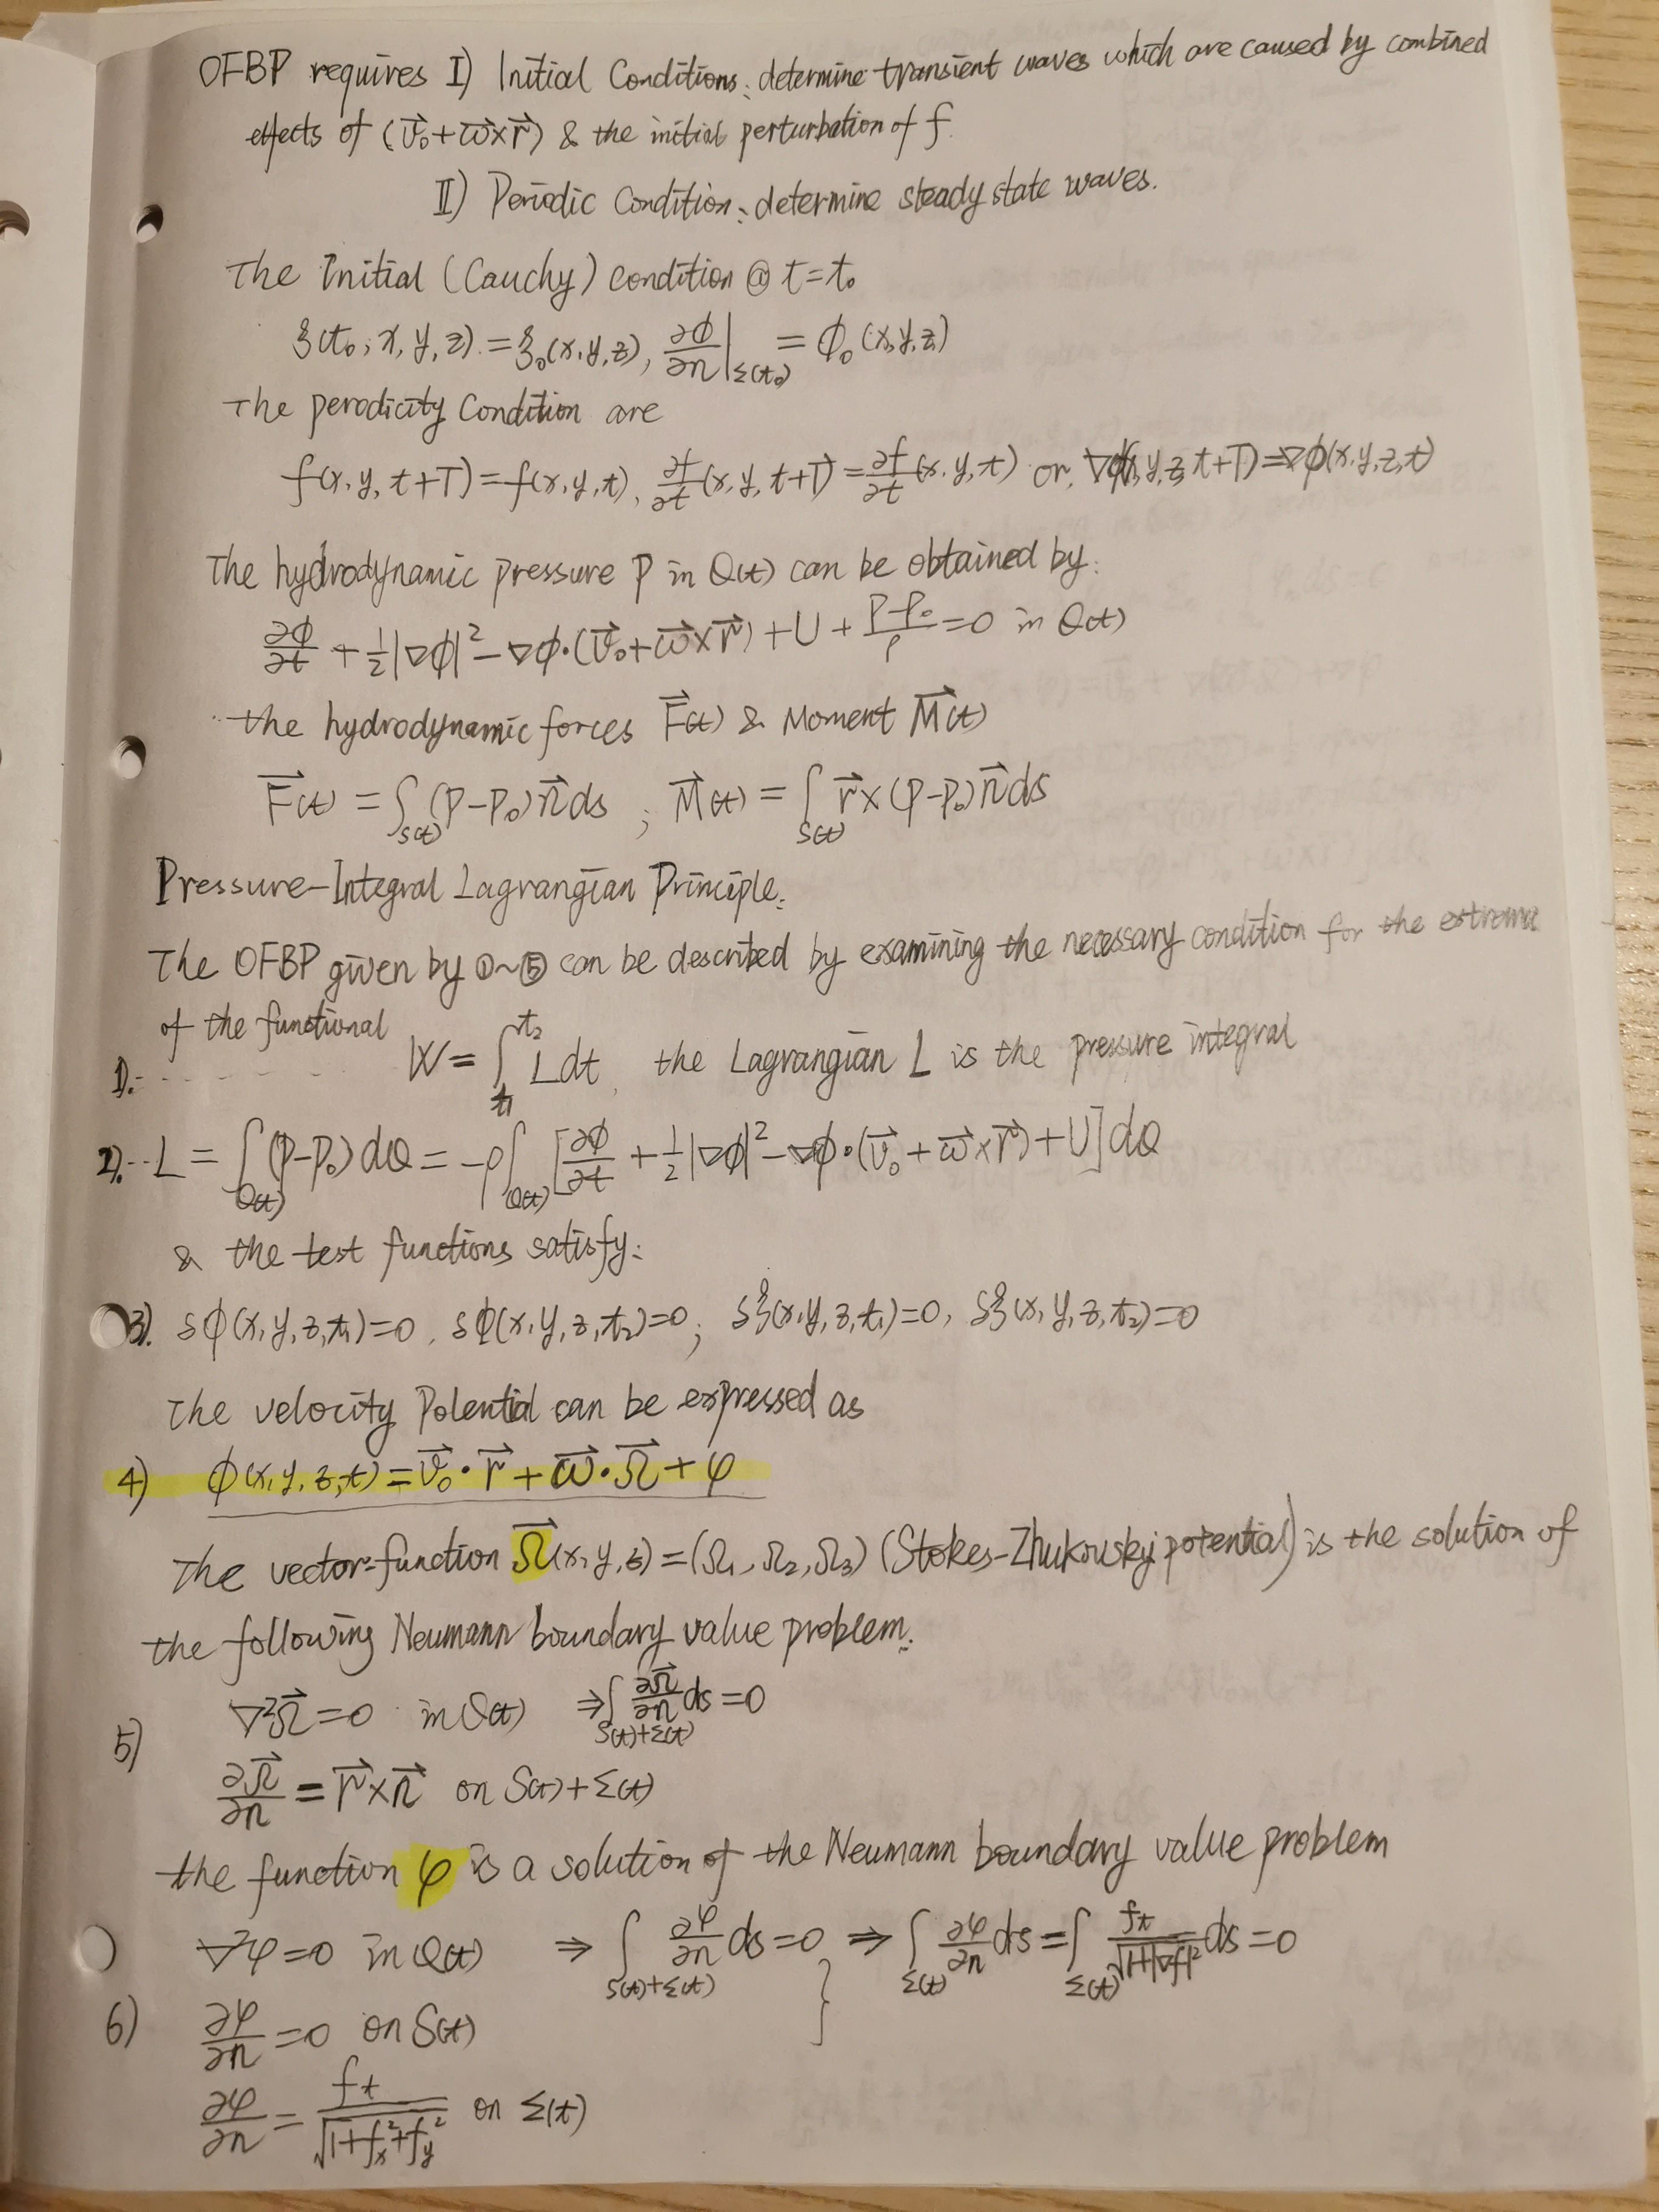 OFBP requires I) Initial Conditions: determine transient waves which are caused by combined
effects of (v⃗₀+ω⃗×r⃗) & the initial perturbation of f.
II) Periodic Condition: determine steady state waves.
The Initial (Cauchy) condition @ t=t₀
ξ(t₀; x, y, z) = ξ₀(x, y, z), ∂ϕ/∂n|Σ(t₀) = ϕ₀(x, y, z)
The perodicity Condition are
f(x, y, t+T) = f(x, y, t), ∂f/∂t (x, y, t+T) = ∂f/∂t (x, y, t) or, ∇ϕ(x, y, z, t+T) = ∇ϕ(x, y, z, t)
The hydrodynamic pressure P in Q(t) can be obtained by:
∂ϕ/∂t + ½|∇ϕ|² − ∇ϕ·(v⃗₀+ω⃗×r⃗) + U + (P−P₀)/ρ = 0 in Q(t)
the hydrodynamic forces F⃗(t) & Moment M⃗(t)
F⃗(t) = ∫S(t) (P−P₀) n⃗ ds ; M⃗(t) = ∫S(t) r⃗×(P−P₀) n⃗ ds
Pressure-Integral Lagrangian Principle.
The OFBP given by ①~⑤ can be described by examining the necessary condition for the extrema
of the functional
1). W = ∫t₁^t₂ L dt, the Lagrangian L is the pressure integral
2). L = ∫Q(t) (P−P₀) dQ = −ρ∫Q(t) [∂ϕ/∂t + ½|∇ϕ|² − ∇ϕ·(v⃗₀+ω⃗×r⃗) + U] dQ
& the test functions satisfy:
3). δϕ(x, y, z, t₁)=0, δϕ(x, y, z, t₂)=0; δξ(x, y, z, t₁)=0, δξ(x, y, z, t₂)=0
The velocity Potential can be expressed as
4) ϕ(x, y, z, t) = v⃗₀·r⃗ + ω⃗·Ω⃗ + φ
The vector-function Ω⃗(x, y, z) = (Ω₁, Ω₂, Ω₃) (Stokes-Zhukovsky potential) is the solution of
the following Neumann boundary value problem.
∇²Ω⃗ = 0 in Q(t) ⇒ ∫S(t)+Σ(t) ∂Ω⃗/∂n ds = 0
5)
∂Ω⃗/∂n = r⃗×n⃗ on S(t)+Σ(t)
the function φ is a solution of the Neumann boundary value problem
∇²φ = 0 in Q(t) ⇒ ∫S(t)+Σ(t) ∂φ/∂n ds = 0 } ⇒ ∫Σ(t) ∂φ/∂n ds = ∫Σ(t) fₜ/√(1+|∇f|²) ds = 0
6) ∂φ/∂n = 0 on S(t)
∂φ/∂n = fₜ/√(1+fₓ²+f_y²) on Σ(t)